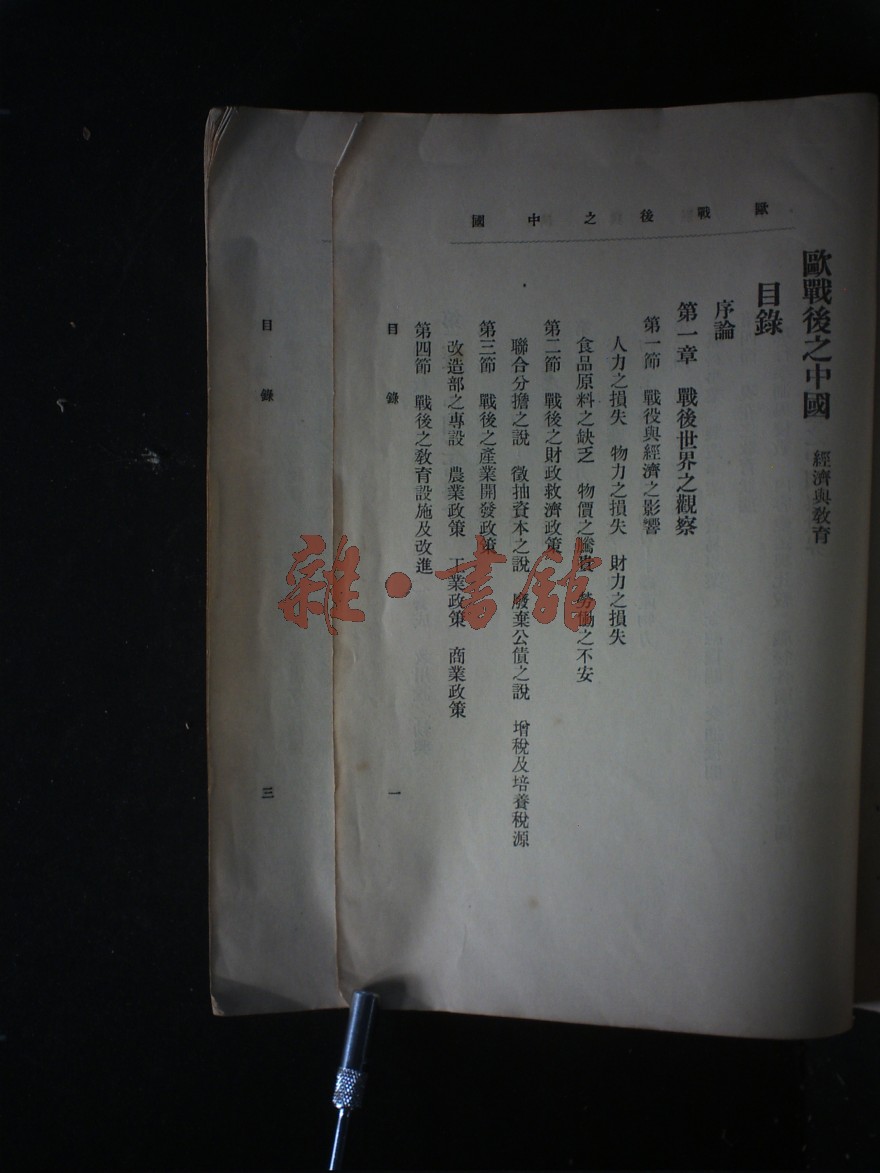 歐戰後之中國
歐戰後之中國 經濟與教育
目錄
序論
第一章 戰後世界之觀察
第一節 戰役與經濟之影響
人力之損失 物力之損失 財力之損失
食品原料之缺乏 物價之騰貴 勞働之不安
第二節 戰後之財政救濟政策
聯合分擔之說 徵抽資本之說 廢棄公債之說 增稅及培養稅源
第三節 戰後之產業開發政策
改造部之專設 農業政策 工業政策 商業政策
第四節 戰後之教育設施及改進
目錄 一
目錄 三
雜·書館